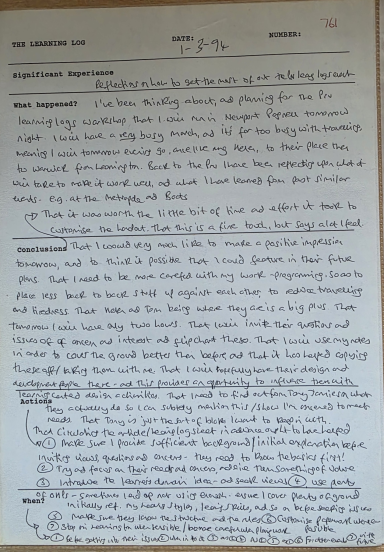 761
THE LEARNING LOG
DATE:
1-3-94
NUMBER:
Significant Experience
Reflections on how to get the most of out learning logs event
What happened? I've been thinking about, and planning for the Pru
learning logs workshop that I will run in Newport Pagnell tomorrow
night. I will have a very busy March, and it's far too busy with travelling,
meaning I will tomorrow evening go, and like my Helen, to their place then
to Warwick from Leamington. Back to the Pru I have been reflecting upon what it
will take to make it work well, and what I have learned from past similar
events. e.g. at the and Boots
That it was worth the little bit of time and effort it took to
customise the handout. That this is a fine tool, but says a lot I feel.
Conclusions That I would very much like to make a positive impression
tomorrow, and to think it possible that I could feature in their future
plans. That I need to be more careful with my work-programming. So as to
place less back to back stuff up against each other, to reduce travelling
and tiredness. That Helen and Tom being where they are is a big plus. That
tomorrow I will have only two hours. That I will invite their questions and
issues of concern and interest and flipchart these. That I will use my notes
in order to cover the ground better than before and that it has helped copying
these off / taking them with me. That I will hopefully have their design and
development people there - and this provides an opportunity to them with
learning centred design activities. That I need to find out from Tony Jamieson what
Actions
they actually do so I can subtly mention this / show I'm concerned to meet
needs. That Tony is just the sort of bloke I want to keep in with.
That circulating the article / learning log sheet in advance ought to have helped
① make sure I provide sufficient background / initial explanation before
inviting views, questions and concerns - they need to know the basics first!
② Try and focus on their needs and concerns, and give them something of value
③ Introduce the learners domain idea - and seek views ④ use plenty
of OHTs - sometimes I do not use enough - ensure I cover plenty of ground
When?
initially ref. my means, styles, learning skills, and so on before seeking issues
⑤ make sure they know the structure and the rules ⑥ Customise paperwork
⑦ Stay in Leamington when sensible / borrow